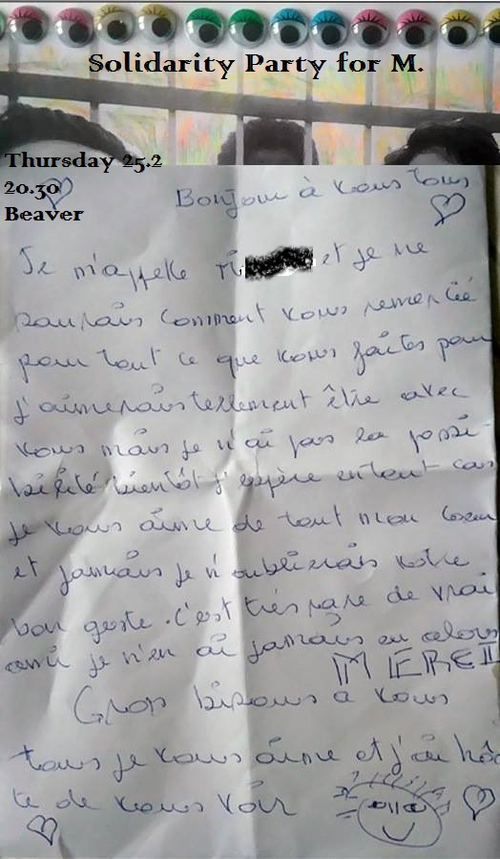 Solidarity Party for M.
Thursday 25.2
20.30
Beaver
Bonjour à vous tous
Je m'appelle et je ne
saurais comment vous remercié
pour tout ce que vous faites pour
j'aimerais tellement être avec
vous mais je n'ai pas la possi-
bilité bientôt j'espère en tout cas
je vous aime de tout mon coeur
et jamais je n'oublierais votre
bon geste. c'est très rare de vrai
ami je n'en ai jamais eu alors
MERCI
Gros bisous a vous
tous je vous aime et j'ai hâ
te de vous voir